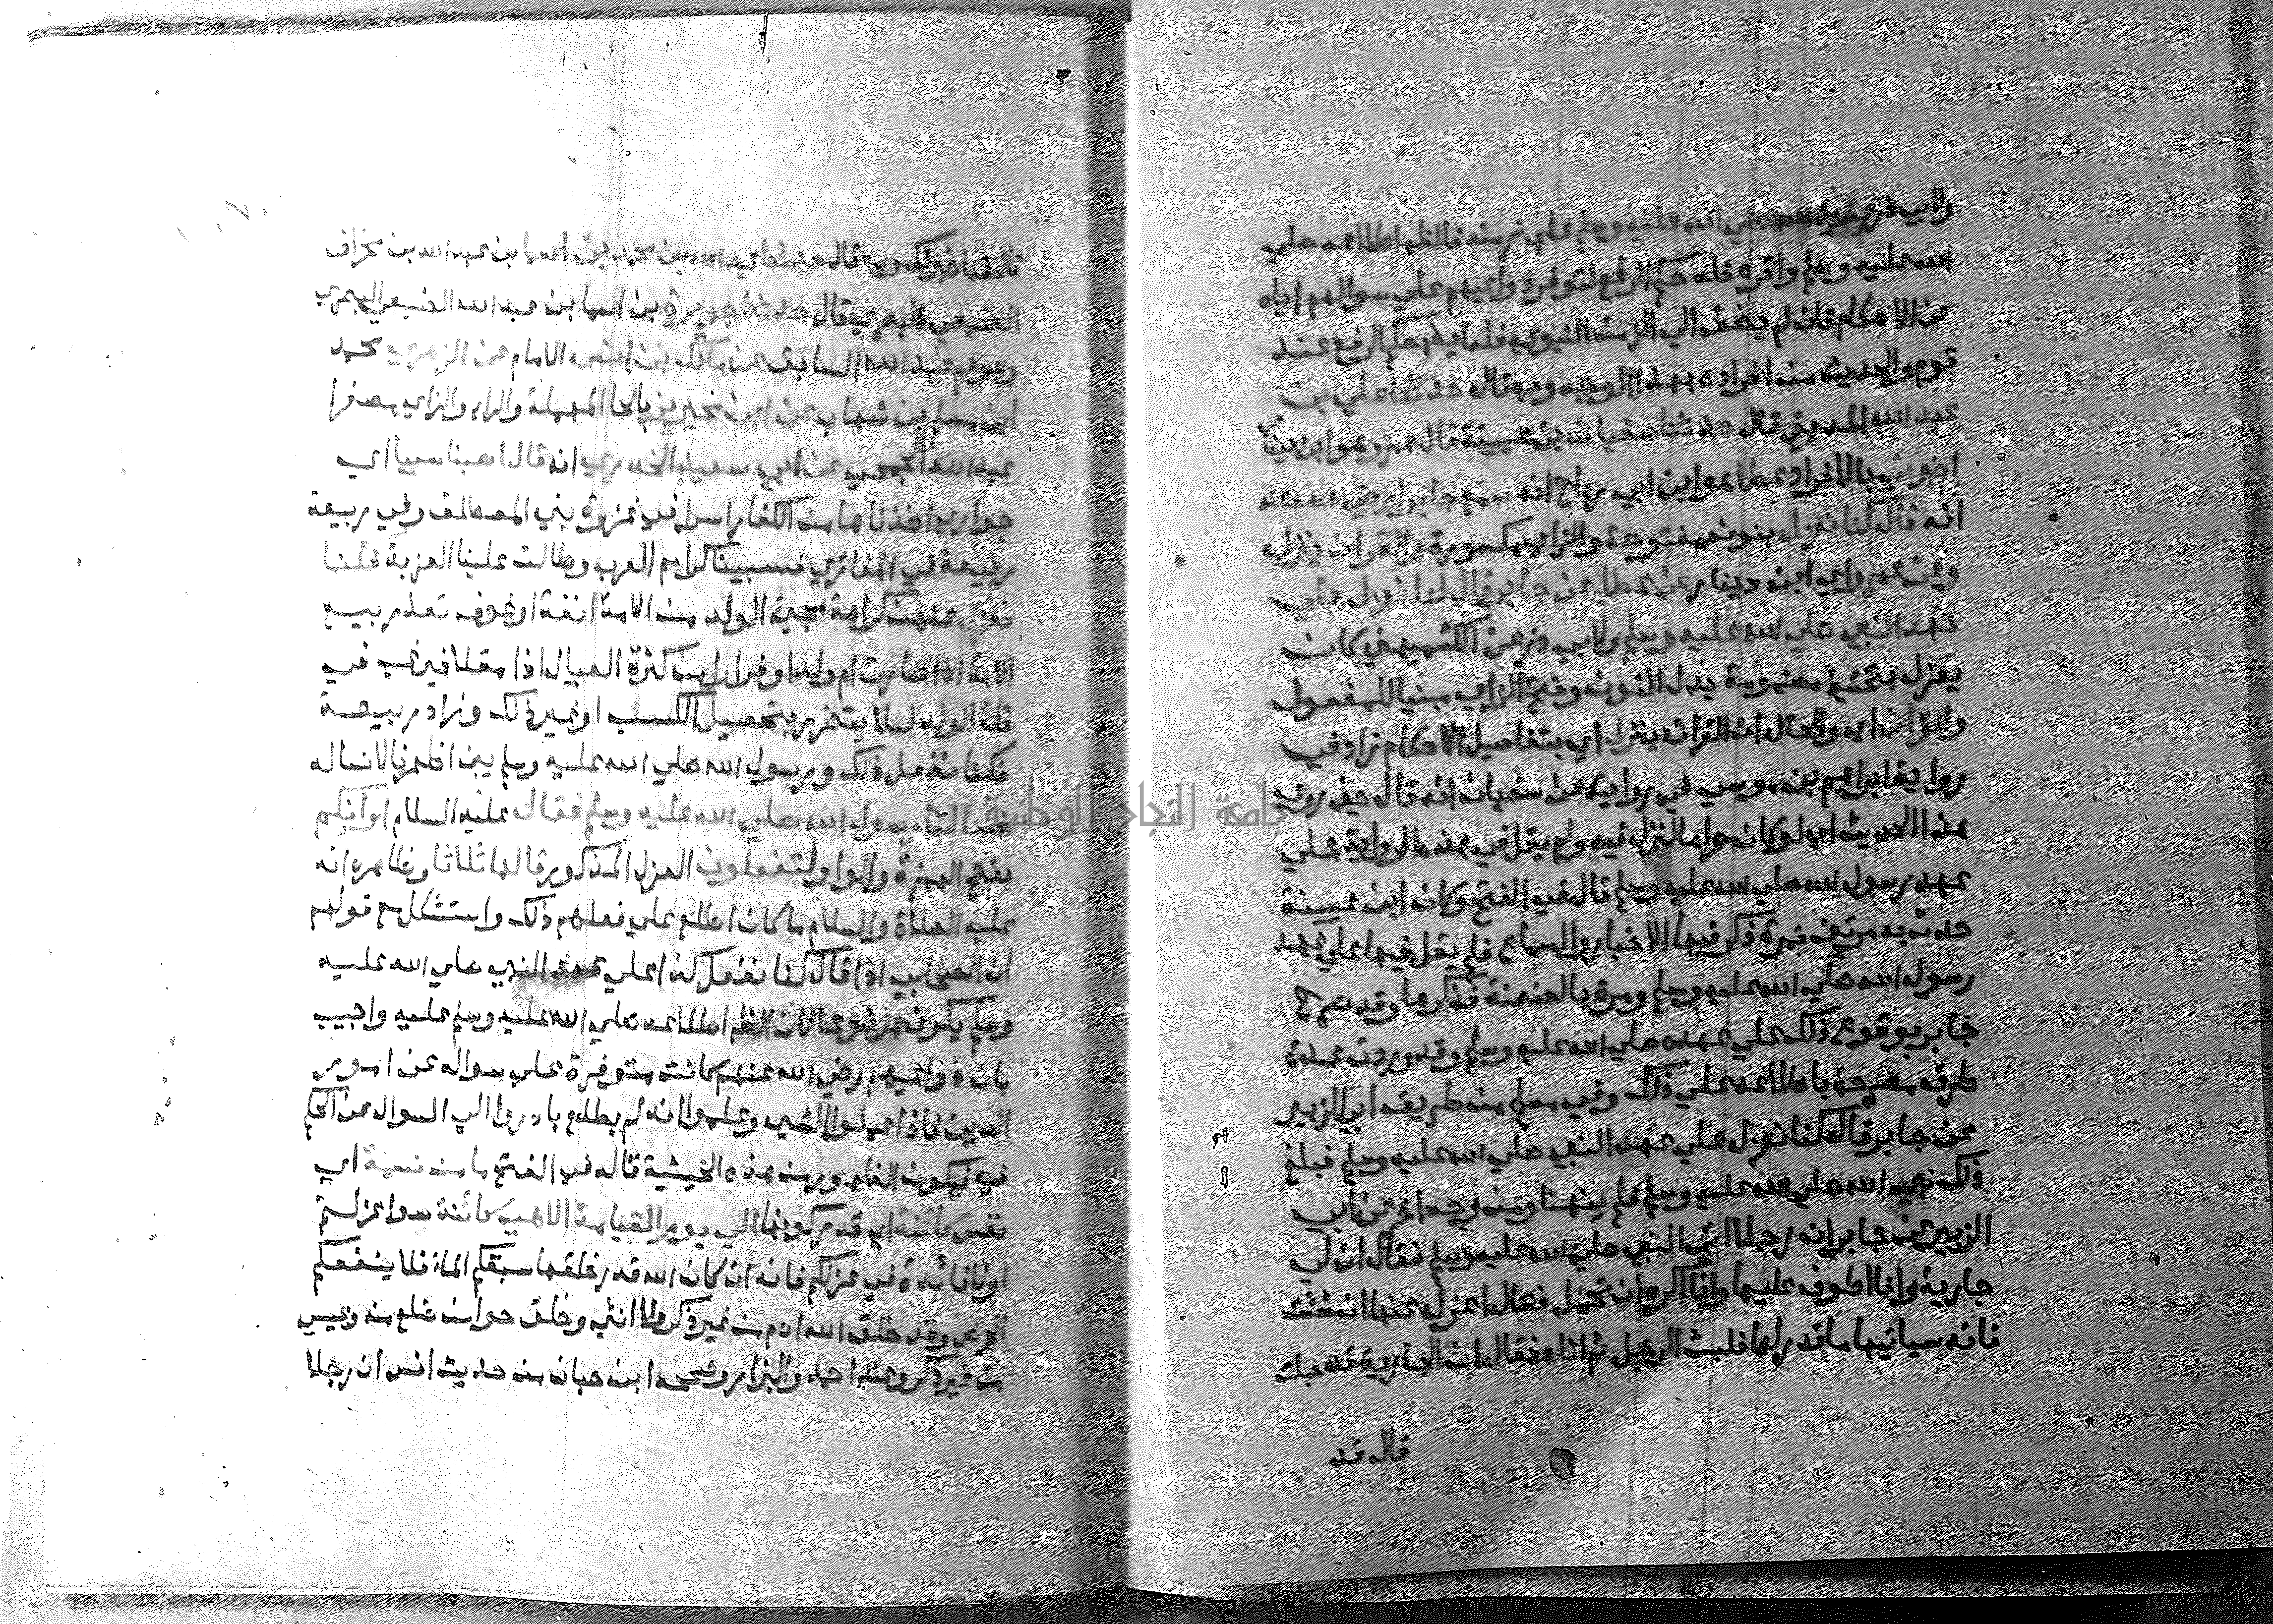 ولابي ذر رسول الله صلي الله عليه وسلم علي زمنه فالظاهر اطلاعه صلي
الله عليه وسلم واقره فله حكم الرفع لتوفر دواعيهم علي سوالهم اياه
عن الاحكام فان لم يضف الي الزمن النبوي فله ايضا حكم الرفع عند
قوم والحديث من افراده بهذا الوجه وبه قال حدثنا علي بن
عبد الله المديني قال حدثنا سفيان بن عيينة قال عمرو هو ابن دينار
اخبرني بالافراد عطا هو ابن ابي رباح انه سمع جابرا رضي الله عنه
انه قال كنا نعزل بنون مفتوحة والزاي مكسورة والقران ينزل
وعن عمرو اي ابن دينار عن عطاء عن جابر قال كنا نعزل علي
عهد النبي صلي الله عليه وسلم ولابي ذر عن الكشميهني كان
يعزل بتحتية مضمومة بدل النون وفتح الزاي مبنيا للمفعول
والقران اي والحال ان القران ينزل اي بتفاصيل الاحكام زاد في
رواية ابراهيم بن موسي في روايته عن سفيان انه قال حين روي
هذا الحديث اي لو كان حراما لنزل فيه ولم يقل في هذه الرواية علي
عهد رسول الله صلي الله عليه وسلم قال في الفتح وكان ابن عيينة
حدث به مرتين فمرة ذكر فيها الاخبار والسماع فلم يقل فيها علي عهد
رسول الله صلي الله عليه وسلم ومرة بالعنعنة فذكرها وقد صرح
جابر بوقوع ذلك علي عهده صلي الله عليه وسلم وقد وردت عدة
طرق مصرحة باطلاعه علي ذلك وفي مسلم من طريق ابي الزبير
عن جابر قال كنا نعزل علي عهد النبي صلي الله عليه وسلم فبلغ
ذلك نبي الله صلي الله عليه وسلم فلم ينهنا ومن وجه اخر عن ابي
الزبير عن جابر ان رجلا اتي النبي صلي الله عليه وسلم فقال ان لي
جارية وانا اطوف عليها وانا اكره ان تحمل فقال اعزل عنها ان شئت
فانه سياتيها ما قدر لها فلبث الرجل ثم اتاه فقال ان الجارية قد حبلت
قال قد
قال قد اخبرتك وبه قال حدثنا عبد الله بن محمد بن اسما بن عبد الله بن مخراق
الضبعي البصري قال حدثنا جويرة بن اسما بن عبد الله الضبعي البصري
وهو عم عبد الله السابق عن مالك بن انس الامام عن الزهري محمد
ابن مسلم بن شهاب عن ابن محيريز بالحا المهملة والراء والزاي مصغرا
عبد الله الجمحي عن ابي سعيد الخدري انه قال اصبنا سبيا اي
جواري اخذناها من الكفار اسرا في غزوة بني المصطلق وفي ربيعة
ربيعة في المغازي فسبينا كرايم العرب وطالت علينا العزبة فكنا
نعزل عنهن كراهة مجيئ الولد من الامة انفة او خوف تعذر بيع
الامة اذا صارت ام ولد او فرارا من كثرة العيال اذا مقلا فيرغب في
قلة الولد ليلا يتضرر بتحصيل الكسب او غير ذلك وزاد ربيعة
فكنا نفعل ذلك ورسول الله صلي الله عليه وسلم بين اظهرنا لانساله
فسالنا رسول الله صلي الله عليه وسلم فقال عليه السلام اوانكم
بفتح الهمزة والواو لتفعلون العزل المذكور قالها ثلاثا وظاهره انه
عليه الصلاة والسلام ما كان اطلع علي فعلهم ذلك واستشكل مع قولهم
ان الصحابي اذا قال كنا نفعل كذا علي عهد النبي صلي الله عليه
وسلم يكون مرفوعا لان الظاهر اطلاعه صلي الله عليه وسلم عليه واجيب
بان دواعيهم رضي الله عنهم كانت متوفرة علي سواله عن امور
الدين فاذا عملوا الشي وعلموا انه لم يطلع بادروا الي السوال عن الحكم
فيه فيكون الظهور من هذه الحيثية قاله في الفتح ما من نسمة اي
نفس كائنة اي قدر كونها الي يوم القيامة الا هي كائنة سوا عزلتم
اولا فائدة في عزلكم فانه ان كان الله قدر خلقها سبقكم الماء فلا ينفعكم
الحرص وقد خلق الله ادم من غير ذكر ولا انثي وخلق حوا من ضلع منه وعيسي
من غير ذكر وعند احمد والبزار وصححه ابن حبان من حديث انس ان رجلا
جامعة النجاح الوطنية